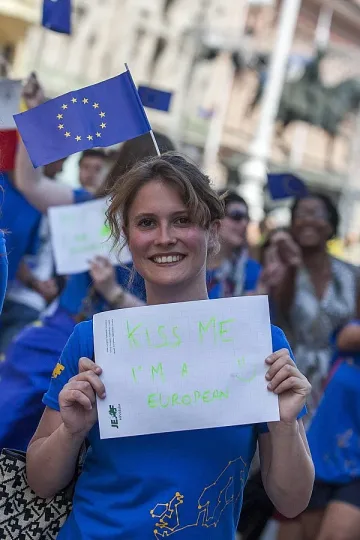 KISS ME
I'M A
EUROPEAN
JEF